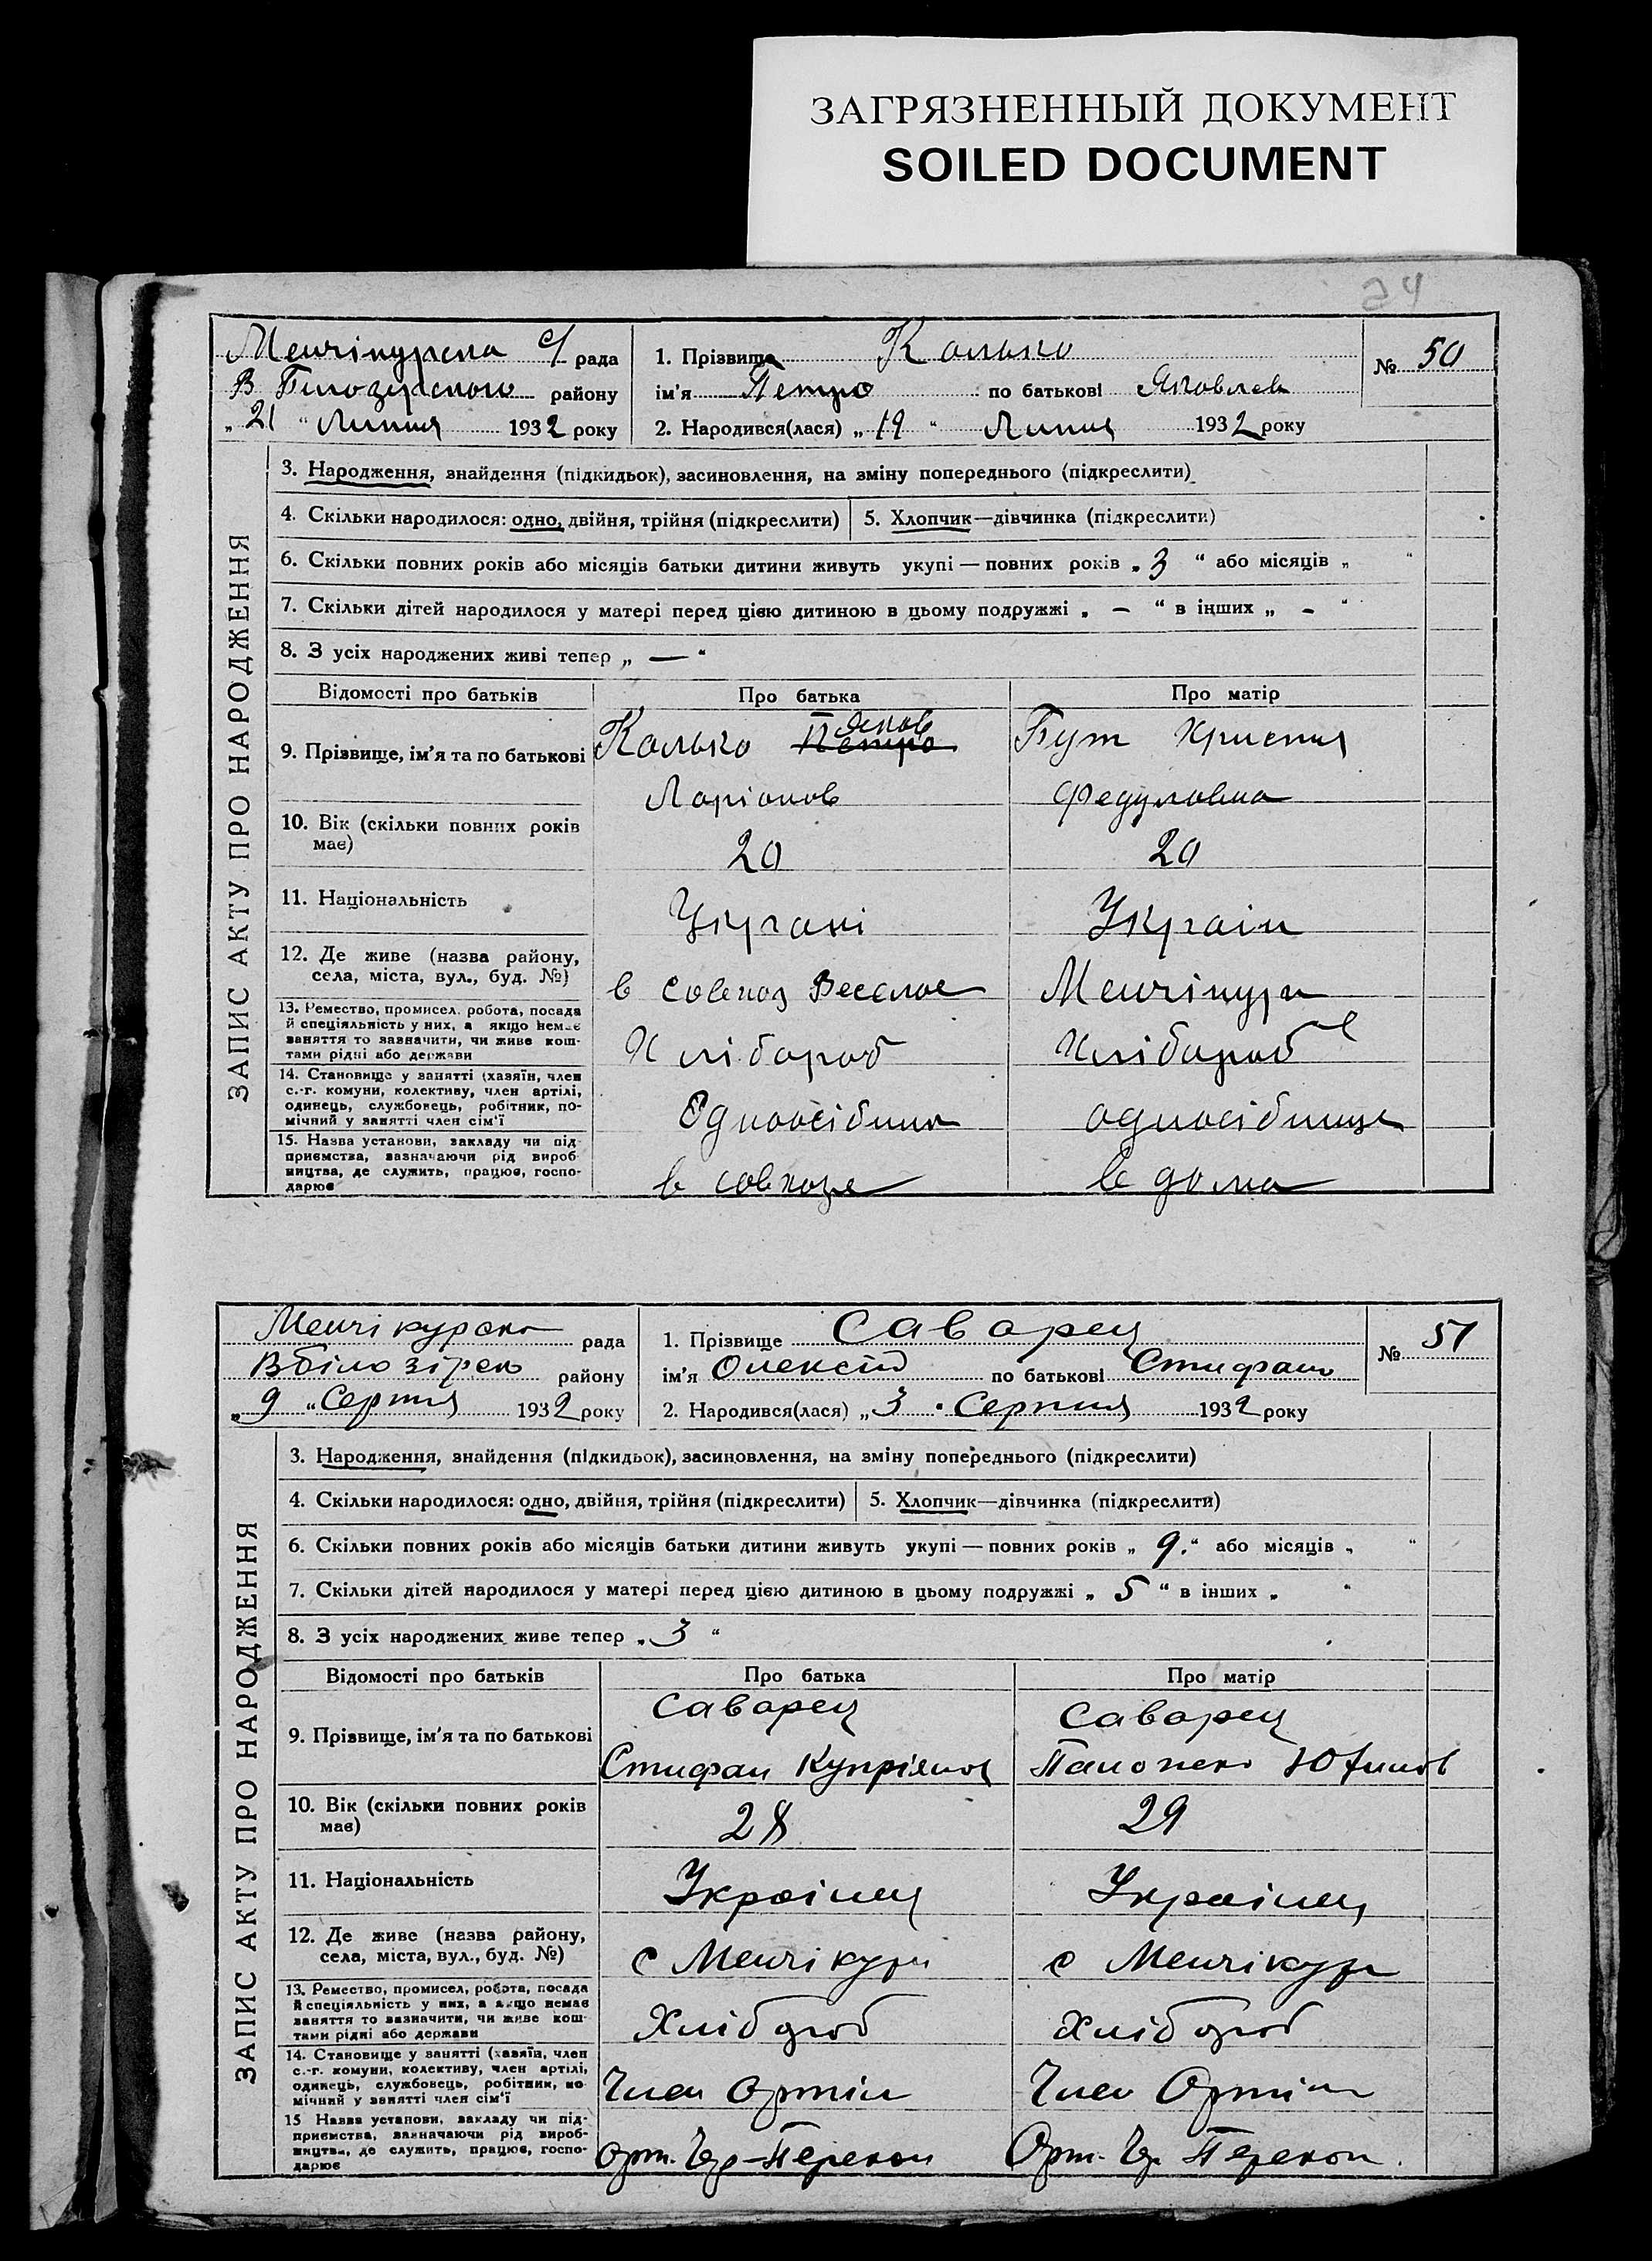 ЗАГРЯЗНЕННЫЙ ДОКУМЕНТ
SOILED DOCUMENT
24
Менчікурска с/ рада
В Білозурского району
„ 21 “ Липня 1932 року
1. Прізвище Калько
ім'я Петро по батькові Яковлев
2. Народився(лася) „ 19 “ Липня 1932 року
№ 50
ЗАПИС АКТУ ПРО НАРОДЖЕННЯ
3. Народження, знайдення (підкидьок), засиновлення, на зміну попереднього (підкреслити)
4. Скільки народилося: одно, двійня, трійня (підкреслити)
5. Хлопчик—дівчинка (підкреслити)
6. Скільки повних років або місяців батьки дитини живуть укупі — повних років „ 3 “ або місяців „ “
7. Скільки дітей народилося у матері перед цією дитиною в цьому подружжі „ — “ в інших „ - “
8. З усіх народжених живі тепер „ — “
Відомості про батьків Про батька Про матір
9. Прізвище, ім'я та по батькові
Калько Петро Яков
Ларіонов
Бут Христя
Федуловна
10. Вік (скільки повних років має)
20 20
11. Національність
Україні Українк
12. Де живе (назва району, села, міста, вул., буд. №)
в Совхоз Веселое Менчікури
13. Ремество, промисел, робота, посада
й спеціяльність у них, а якщо немає
заняття то зазначити, чи живе кош-
тами рідні або держави
Хлібороб Хлібороб
14. Становище у занятті (хазяїн, член
с.-г. комуни, колективу, член артілі,
одинець, службовець, робітник, по-
мічний у занятті член сім'ї
Одноосібник одноосібниця
15. Назва установи, закладу чи під-
приємства, зазначаючи рід вироб-
ництва, де служить, працює, госпо-
дарює
в совхозе в дома
Менчікурска рада
Вбілозірско району
„ 9 “ Серпня 1932 року
1. Прізвище Саварец
ім'я Олексій по батькові Стифано
2. Народився(лася) „ 3 “ Серпня 1932 року
№ 51
ЗАПИС АКТУ ПРО НАРОДЖЕННЯ
3. Народження, знайдення (підкидьок), засиновлення, на зміну попереднього (підкреслити)
4. Скільки народилося: одно, двійня, трійня (підкреслити)
5. Хлопчик—дівчинка (підкреслити)
6. Скільки повних років або місяців батьки дитини живуть укупі — повних років „ 9. “ або місяців „ “
7. Скільки дітей народилося у матері перед цією дитиною в цьому подружжі „ 5 “ в інших „ “
8. З усіх народжених живе тепер „ 3 “
Відомості про батьків Про батька Про матір
9. Прізвище, ім'я та по батькові
Саварец
Стифан Купріянов
Саварец
10. Вік (скільки повних років має)
28 29
11. Національність
Українец Українец
12. Де живе (назва району, села, міста, вул., буд. №)
с Менчікури с Менчікури
13. Ремество, промисел, робота, посада
й спеціяльність у них, а якщо немає
заняття то зазначити, чи живе кош-
тами рідні або держави
Хлібороб Хлібороб
14. Становище у занятті (хазяїн, член
с.-г. комуни, колективу, член артілі,
одинець, службовець, робітник, по-
мічний у занятті член сім'ї
Член Артіли Член Артіли
15 Назва установи, закладу чи під-
приємства, зазначаючи рід вироб-
ництва, де служить, працює, госпо-
дарює
Арт. Чер-Перекоп Арт. Чр. Перекоп.